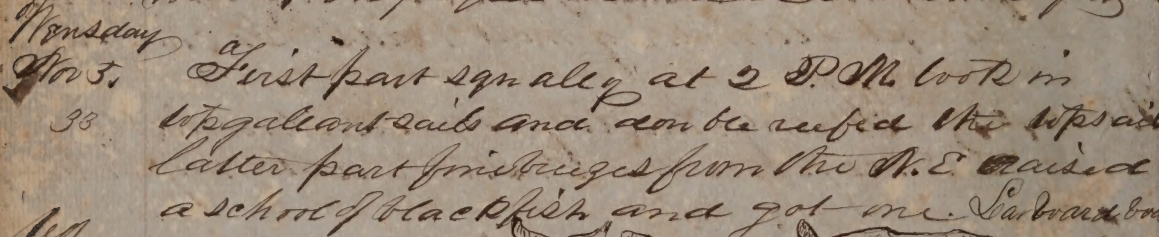 Wensday
Nov 3. First part squally at 2 P.M. took in
33 topgallantsails and double reefed the topsail
latter part fine breezes from the N.E raised
a school of blackfish and got one. Larboard boa